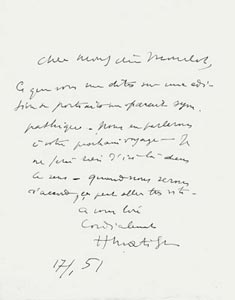 cher Monsieur Mourlot,
Ce que vous me dites sur une édi-
tion de portraits me paraît sym-
pathique. Nous en parlerons
à votre prochain voyage - Je
ne ferai rien d'ici-là dans
ce sens - quand nous serons
d'accord ça peut aller très vite -
à vous lire
Cordialement
HMatisse
17/, 51